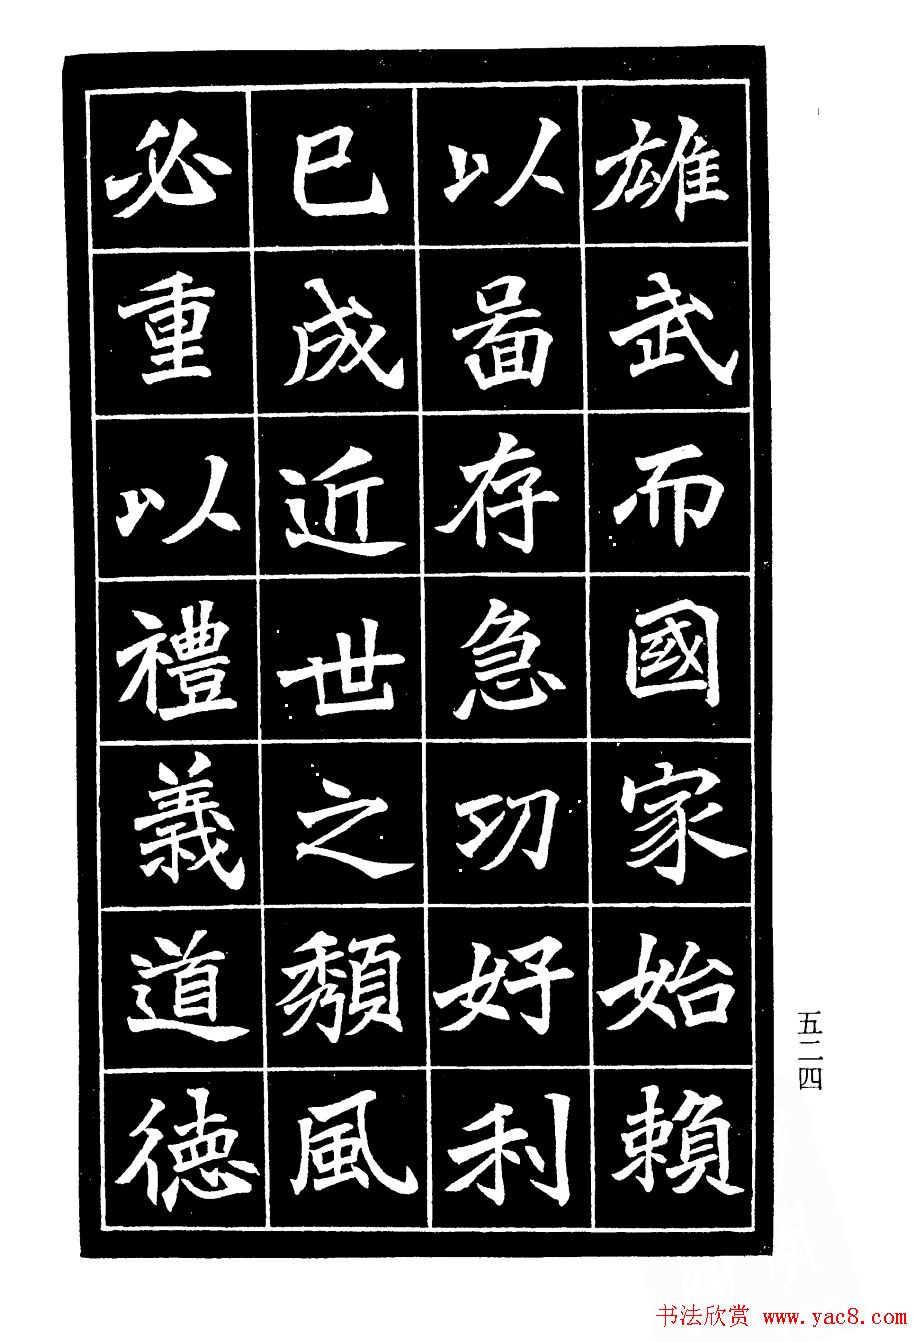 雄武而國家始賴
以啚存急功好利
已成近世之頽風
必重以禮義道德
五二四
书法欣赏 www.yac8.com